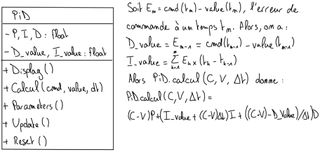 PiD
- P, I, D : float
- D_value, I_value : float
+ Display()
+ Calcul(cmd, value, dt)
+ Parameters()
+ Update()
+ Reset()
Soit Em = cmd(tm) - value(tm), l'erreur de
commande à un temps tm. Alors, on a :
D_value = Em-1 = cmd(tm-1) - value(tm-1)
I_value = Σ Ek × (tk - tk-1)
Alors PiD.calcul(C, V, Δt) donne :
PiD.calcul(C, V, Δt) =
(C-V)P + (I_value + (C-V)Δt)I + ((C-V) - D_value)/Δt)D